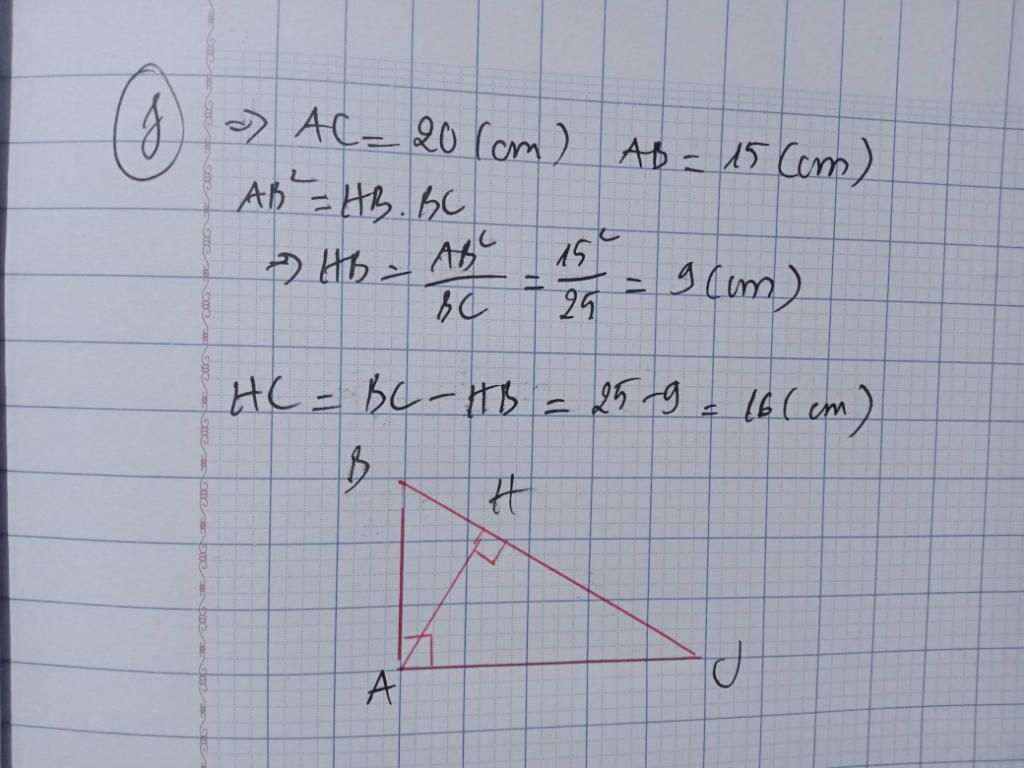 g ⇒ AC = 20 (cm) AB = 15 (cm)
AB² = HB . BC
⇒ HB = AB²/BC = 15²/25 = 9 (cm)
HC = BC - HB = 25 - 9 = 16 (cm)
B
H
A
C